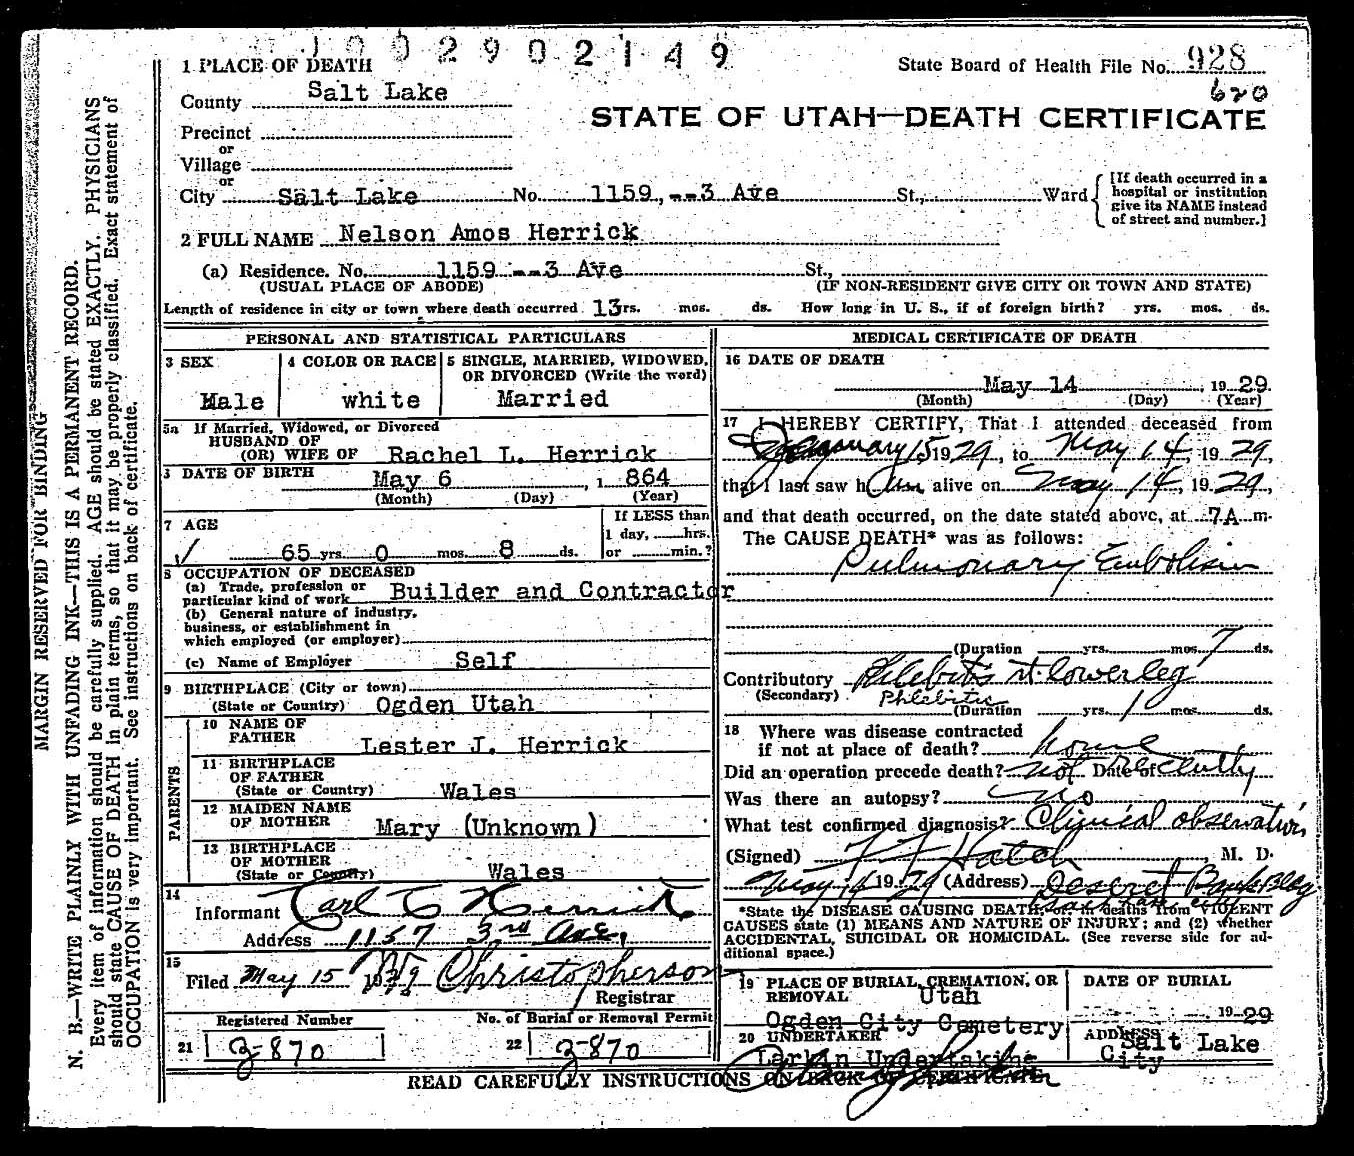 1002902149
1 PLACE OF DEATH
State Board of Health File No. 928
620
County Salt Lake
STATE OF UTAH—DEATH CERTIFICATE
Precinct
or
Village
or
City Salt Lake No. 1159, --3 Ave St., Ward
[If death occurred in a
hospital or institution
give its NAME instead
of street and number.]
2 FULL NAME Nelson Amos Herrick
(a) Residence. No. 1159 --3 Ave St.,
(USUAL PLACE OF ABODE) (IF NON-RESIDENT GIVE CITY OR TOWN AND STATE)
Length of residence in city or town where death occurred 13rs. mos. ds. How long in U. S., if of foreign birth? yrs. mos. ds.
PERSONAL AND STATISTICAL PARTICULARS
3 SEX
Male
4 COLOR OR RACE
white
5 SINGLE, MARRIED, WIDOWED,
OR DIVORCED (Write the word)
Married
5a If Married, Widowed, or Divorced
HUSBAND OF
(OR) WIFE OF Rachel L. Herrick
DATE OF BIRTH May 6, 1 864
(Month) (Day) (Year)
7 AGE
65 yrs. 0 mos. 8 ds.
If LESS than
1 day, hrs.
or min.?
8 OCCUPATION OF DECEASED
(a) Trade, profession or
particular kind of work Builder and Contractor
(b) General nature of industry,
business, or establishment in
which employed (or employer)
(c) Name of Employer Self
9 BIRTHPLACE (City or town)
(State or Country) Ogden Utah
PARENTS
10 NAME OF
FATHER Lester J. Herrick
11 BIRTHPLACE
OF FATHER
(State or Country) Wales
12 MAIDEN NAME
OF MOTHER Mary (Unknown)
13 BIRTHPLACE
OF MOTHER
(State or Country) Wales
14
Informant Carl C Herrick
Address 1157 3rd Ave.
15
Filed May 15 1929 Christopherson
Registrar
Registered Number
21 3-870
No. of Burial or Removal Permit
22 3-870
MEDICAL CERTIFICATE OF DEATH
16 DATE OF DEATH
May 14, 19 29.
(Month) (Day) (Year)
17 I HEREBY CERTIFY, That I attended deceased from
January 15, 1929, to May 14, 19 29,
that I last saw him alive on May 14, 19 29,
and that death occurred, on the date stated above, at 7A m.
The CAUSE DEATH* was as follows:
Pulmonary Embolism
(Duration yrs. mos. 7 ds.
Contributory Phlebitis rt. lower leg
(Secondary) Phlebitis
(Duration yrs. 1 mos. ds.
18 Where was disease contracted
if not at place of death? home
Did an operation precede death? not Date of recently
Was there an autopsy? no
What test confirmed diagnosis? Clinical observation
(Signed) Hatch M. D.
May 14 19 29 (Address) Deseret Bank Bldg
*State the DISEASE CAUSING DEATH, or, in deaths from VIOLENT
CAUSES state (1) MEANS AND NATURE OF INJURY; and (2) whether
ACCIDENTAL, SUICIDAL OR HOMICIDAL. (See reverse side for ad-
ditional space.)
19 PLACE OF BURIAL, CREMATION, OR
REMOVAL Utah
Ogden City Cemetery
DATE OF BURIAL
19 29
20 UNDERTAKER
Larkin Undertaking
ADDRESS
Salt Lake
City
READ CAREFULLY INSTRUCTIONS ON BACK OF CERTIFICATE
MARGIN RESERVED FOR BINDING
N. B.—WRITE PLAINLY WITH UNFADING INK—THIS IS A PERMANENT RECORD.
Every item of information should be carefully supplied. AGE should be stated EXACTLY. PHYSICIANS
should state CAUSE OF DEATH in plain terms, so that it may be properly classified. Exact statement of
OCCUPATION is very important. See instructions on back of certificate.